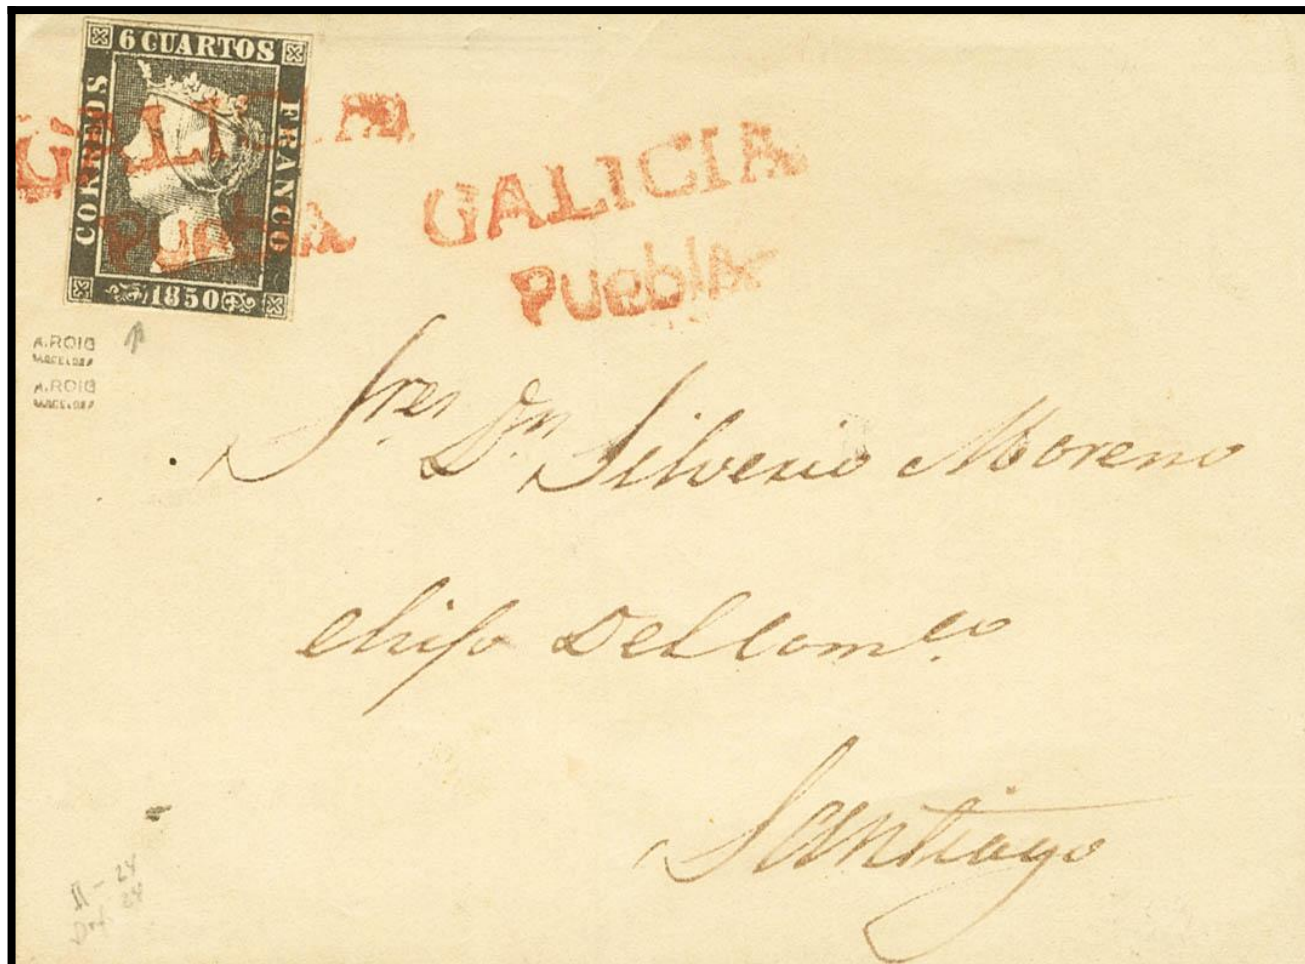 6 CUARTOS
CORREOS
FRANCO
1850
GALICIA
PueblA
GALICIA
PueblA
A.ROIG
BARCELONA
A.ROIG
BARCELONA
Sres Dn Silverio Moreno
é hijo Del Comco
Santiago
II - 24